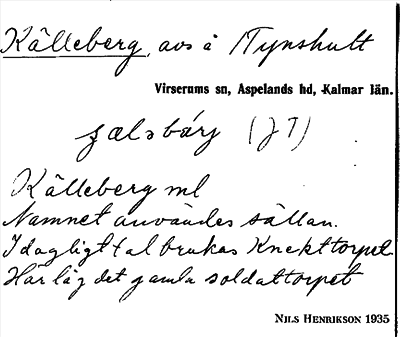 Källeberg, avs å Tynshult
Virserums sn, Aspelands hd, Kalmar län.
(JT)
Källeberg ml
Namnet användes sällan.
I dagligt tal brukas Knekttorpet
Här låg det gamla soldattorpet
NILS HENRIKSON 1935